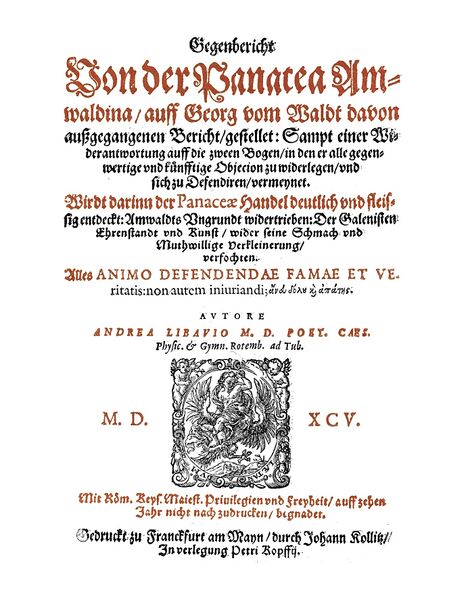 Gegenbericht
Von der Panacea Am-
waldina / auff Georg vom Waldt davon
außgegangenen Bericht / gestellet: Sampt einer Wi-
derantwortung auff die zween Bogen / in den er alle gegen-
wertige vnd künfftige Objecion zu widerlegen / vnd
sich zu Defendiren / vermeynet.
Wirdt darinn der Panaceæ Handel deutlich vnd fleis-
sig entdeckt: Amwaldts Vngrundt widertrieben: Der Galenisten
Ehrenstandt vnd Kunst / wider seine Schmach vnd
Muthwillige Verkleinerung /
verfochten.
Alles ANIMO DEFENDENDAE FAMAE ET VE-
ritatis: non autem iniuriandi;
AVTORE
ANDREA LIBAVIO M. D. POET. CAES.
Physic. & Gymn. Rotemb. ad Tub.
M. D. XCV.
Mit Röm. Keys. Maiest. Priuilegien vnd Freyheit / auff zehen
Jahr nicht nachzudrucken / begnadet.
Gedruckt zu Franckfurt am Mayn / durch Johann Kollitz /
In verlegung Petri Kopffij.